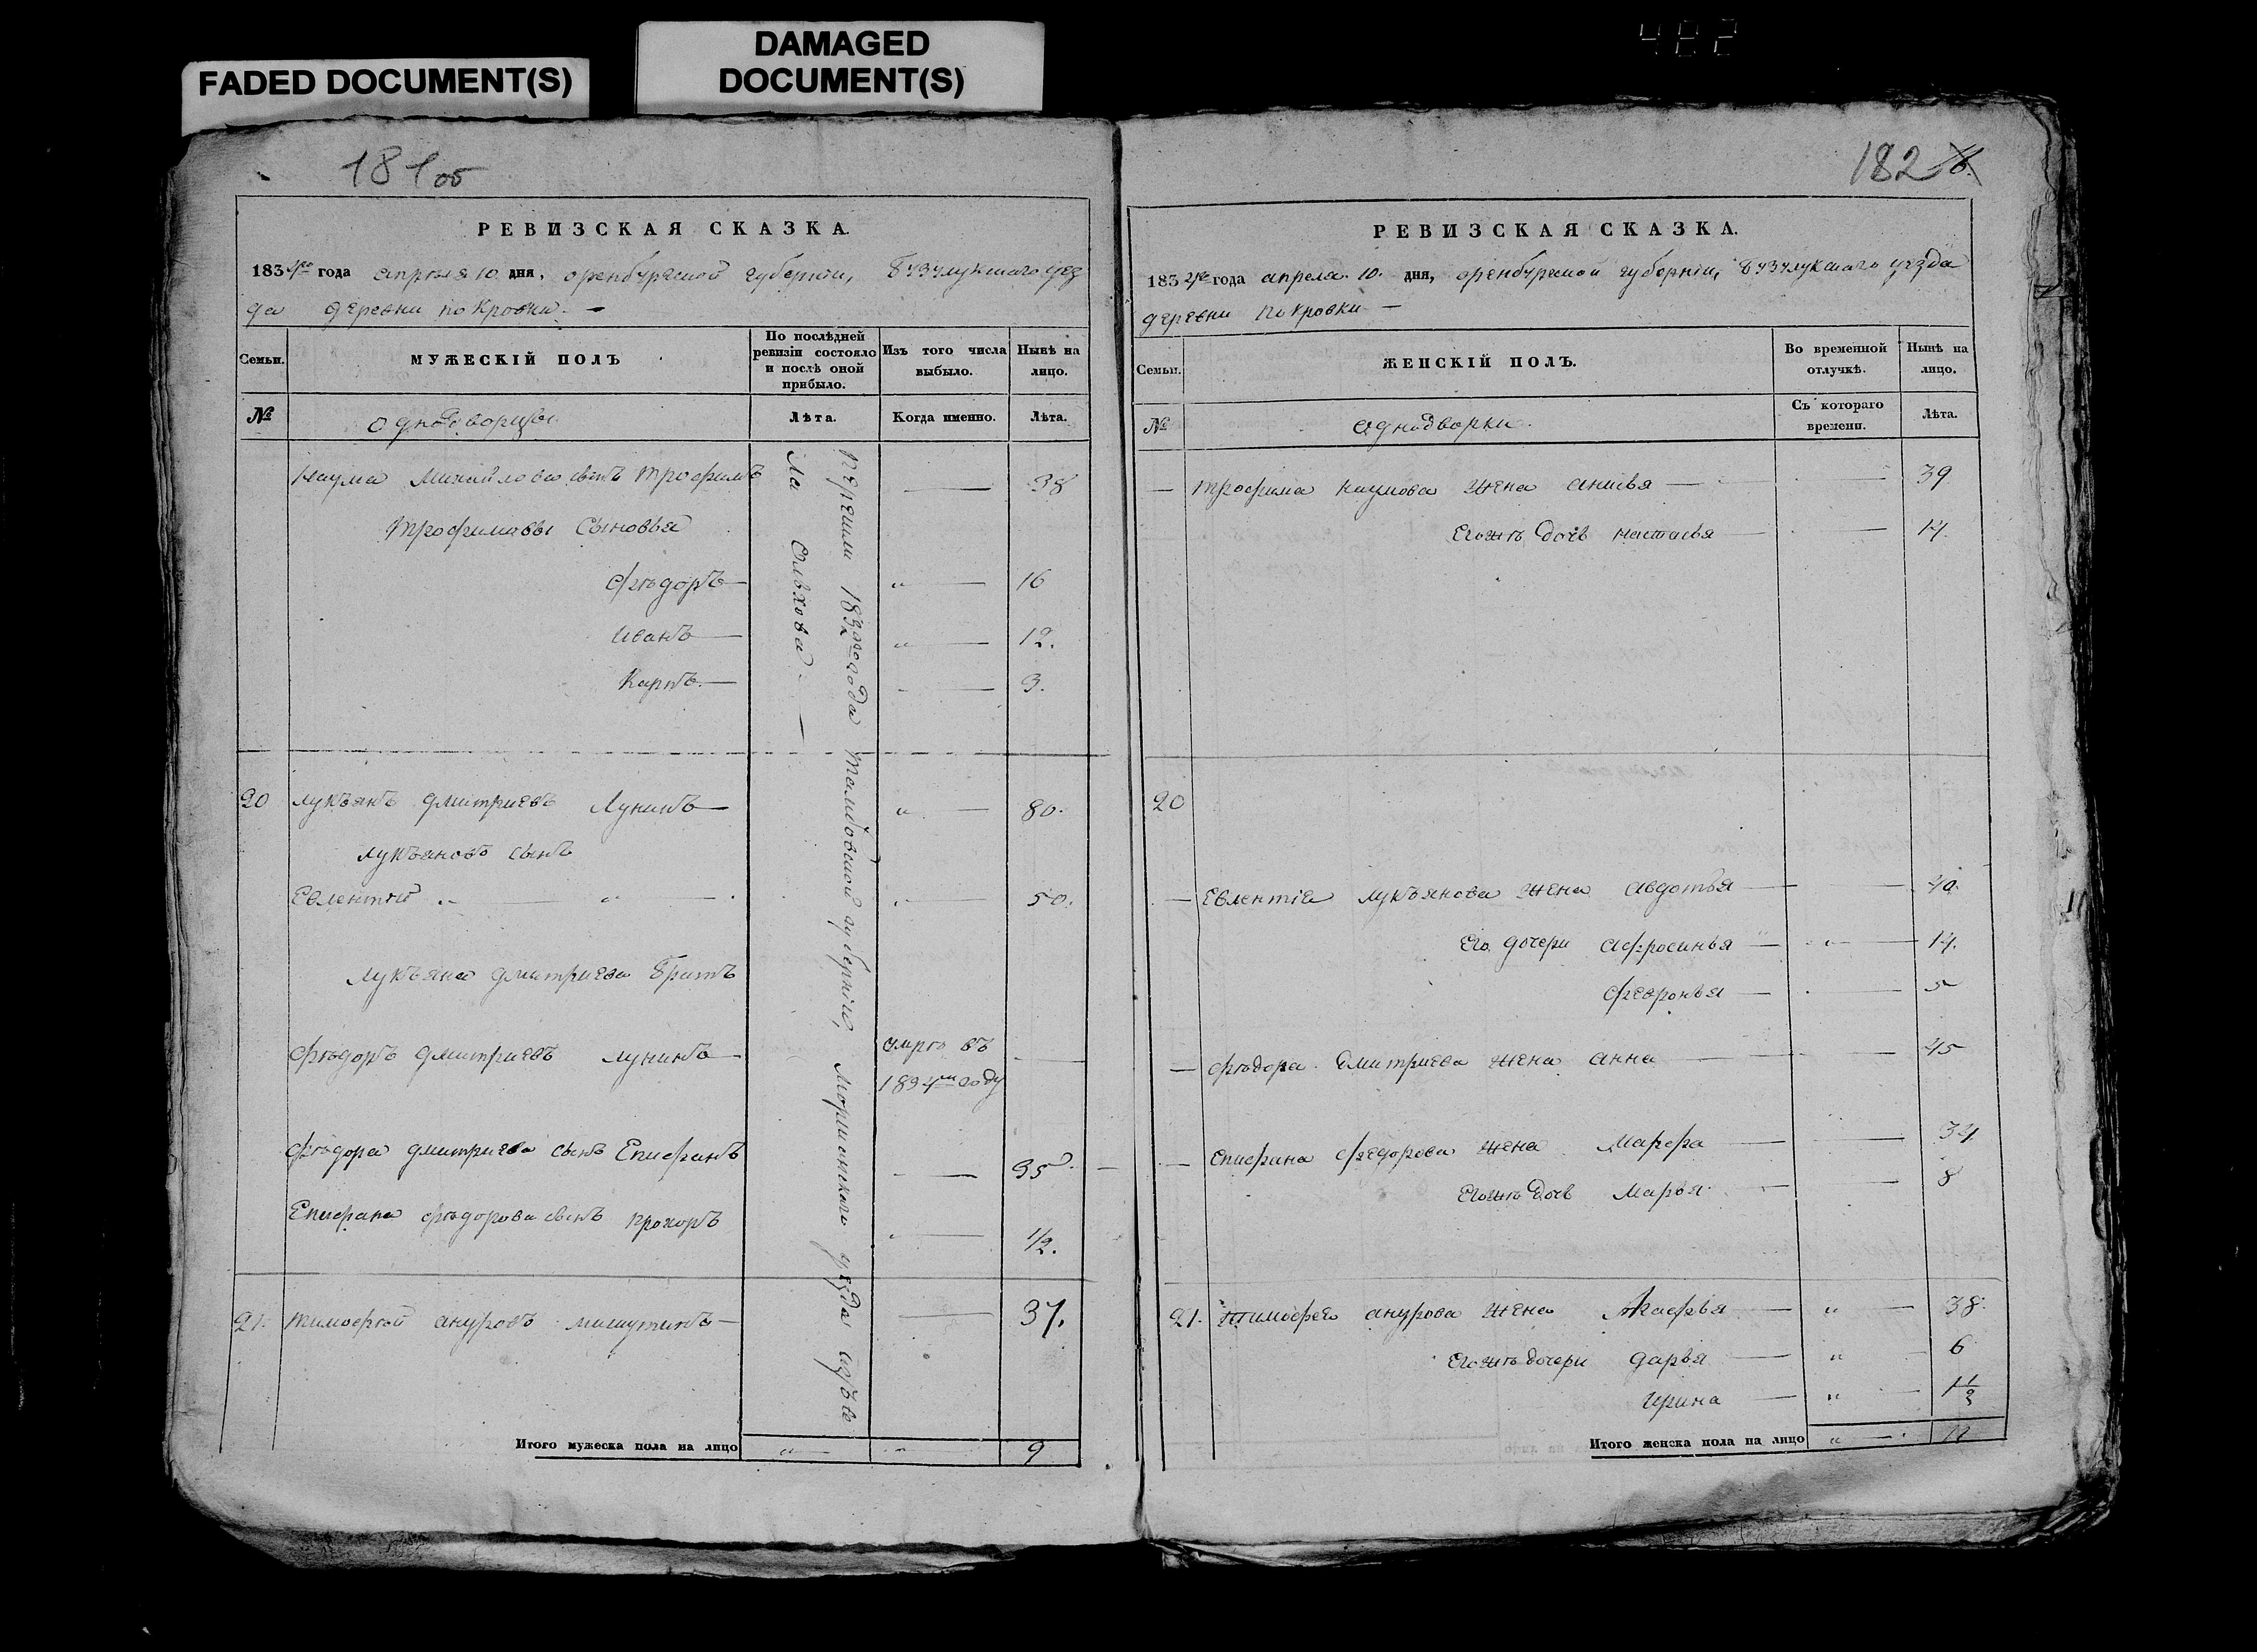 FADED DOCUMENT(S)
DAMAGED
DOCUMENT(S)
482
181об
РЕВИЗСКАЯ СКАЗКА.
1834го года апреля 10 дня, оренбургской губернии, бузулукскаго уез
да деревни покровки. —
Семьи.
МУЖЕСКІЙ ПОЛЪ
По послѣдней
ревизіи состояло
и послѣ оной
прибыло.
Изъ того числа
выбыло.
Нынѣ на
лицо.
№
однодворцы
Лѣта.
Когда именно.
Лѣта.
Наума Михайлова сынъ трофимъ — 38
трофимовы сыновья
фѣдоръ — „ — 16
иванъ — „ — 12.
Карпъ. — 3.
20 лукъянъ дмитриевъ Лунинъ — „ — 80.
лукъяновъ сынъ
Евлентий „ — „ — 50.
лукъяна дмитриева братъ
фѣдоръ дмитриевъ лунинъ — умре въ —
1834м году
фѣдора дмитриева сынъ Епифанъ — 35
Епифана фѣдорова сынъ прохоръ — 1/2.
21. тимофей ануровъ мишутинъ — 37.
Перешли 1832го года тамбовской губернии, моршанскаго уезда изъ се
ла Ольхова. —
Итого мужеска пола на лицо „ — „ — 9
182
РЕВИЗСКАЯ СКАЗКА.
1834го года апреля 10. дня, оренбургской губернии, бузулукскаго уезда
деревни покровки —
Семьи.
ЖЕНСКІЙ ПОЛЪ.
Во временной
отлучкѣ.
Нынѣ на
лицо.
№
однодворки.
Съ котораго
времени.
Лѣта.
— трофима наумова жена анисья — 39
Его жъ дочь настасья — 14.
20
— Евлентіа лукъянова жена авдотья — 40.
Его дочери афросинья — „ — 14.
февронья — 5
— фѣдора дмитриева жена анна — 45
— епифана федорова жена Марфа — 34
Его жъ дочь Марья — 8
21. тимофея анурова жена — „ — 38.
Его жъ дочери дарья — „ — 6
Ирина — „ — 1 1/2
Итого женска пола на лицо „ — 11